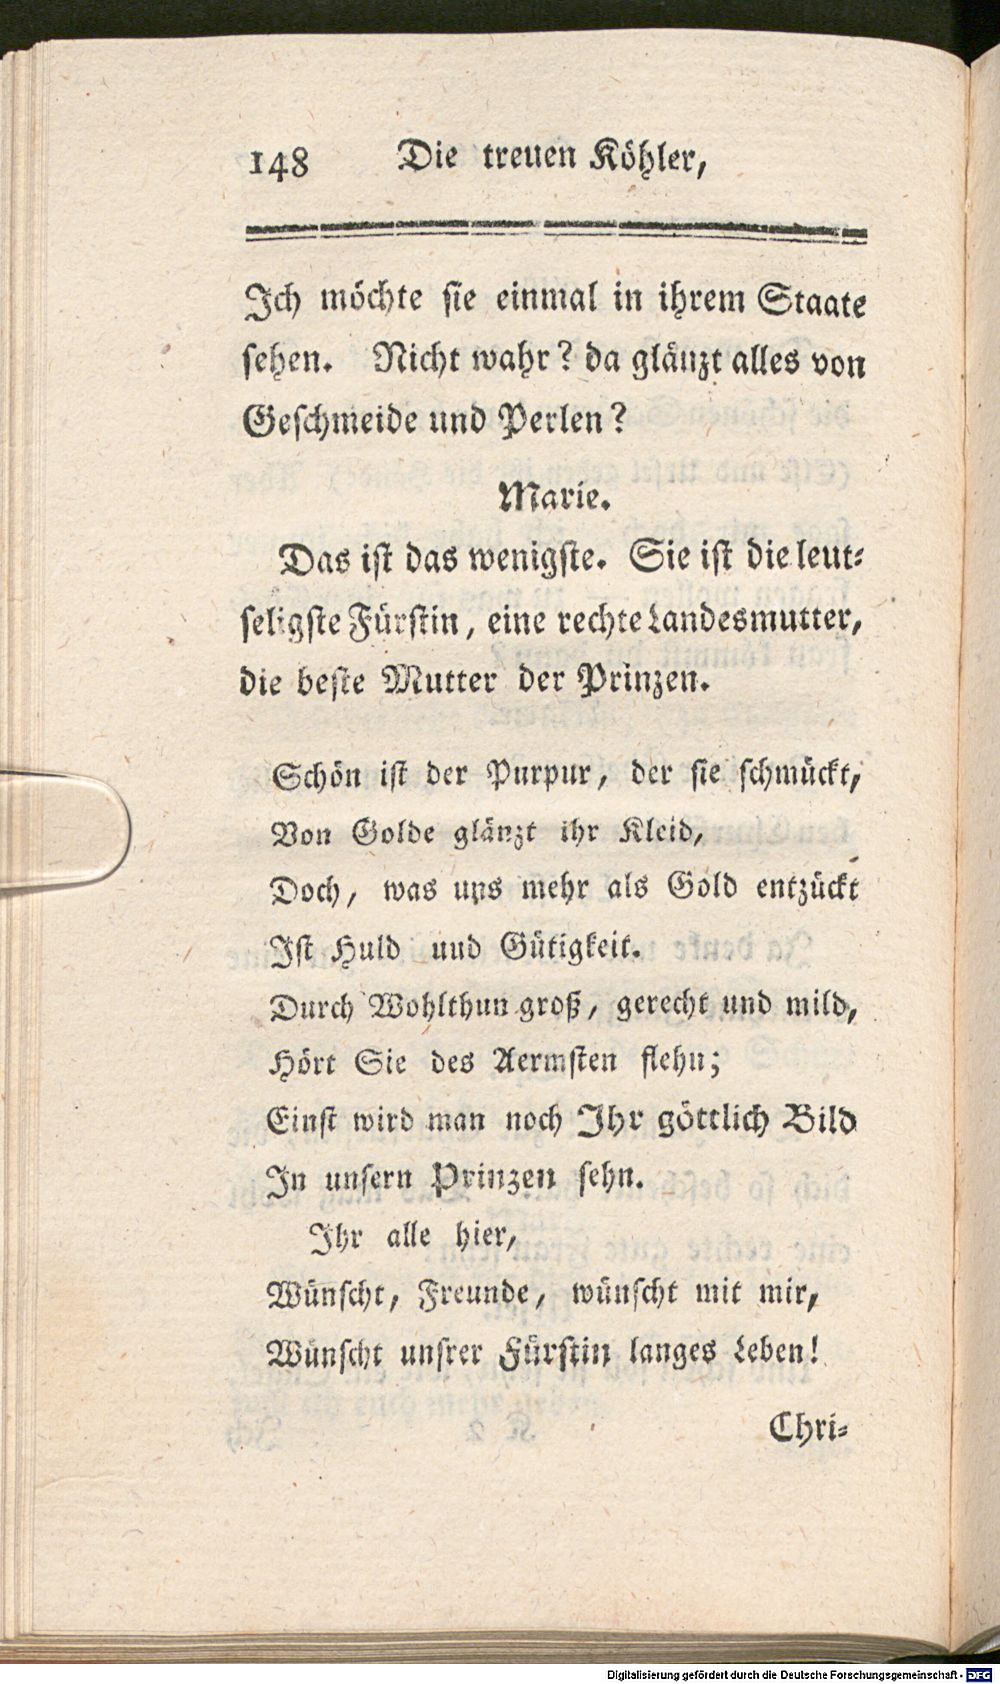 148 Die treuen Köhler,
Ich möchte sie einmal in ihrem Staate
sehen. Nicht wahr? da glänzt alles von
Geschmeide und Perlen?
Marie.
Das ist das wenigste. Sie ist die leut-
seligste Fürstin, eine rechte Landesmutter,
die beste Mutter der Prinzen.
Schön ist der Purpur, der sie schmückt,
Von Golde glänzt ihr Kleid,
Doch, was uns mehr als Gold entzückt
Ist Huld und Gütigkeit.
Durch Wohlthun groß, gerecht und mild,
Hört Sie des Aermsten flehn;
Einst wird man noch Ihr göttlich Bild
In unsern Prinzen sehn.
Ihr alle hier,
Wünscht, Freunde, wünscht mit mir,
Wünscht unsrer Fürstin langes Leben!
Chri-
Digitalisierung gefördert durch die Deutsche Forschungsgemeinschaft - DFG